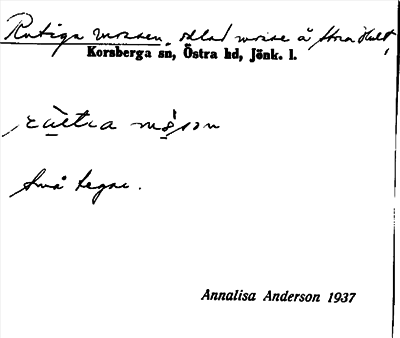 Rutiga mossen, odlad mosse å Stora Hult,
Korsberga sn, Östra hd, Jönk. l.
små tegar.
Annalisa Anderson 1937